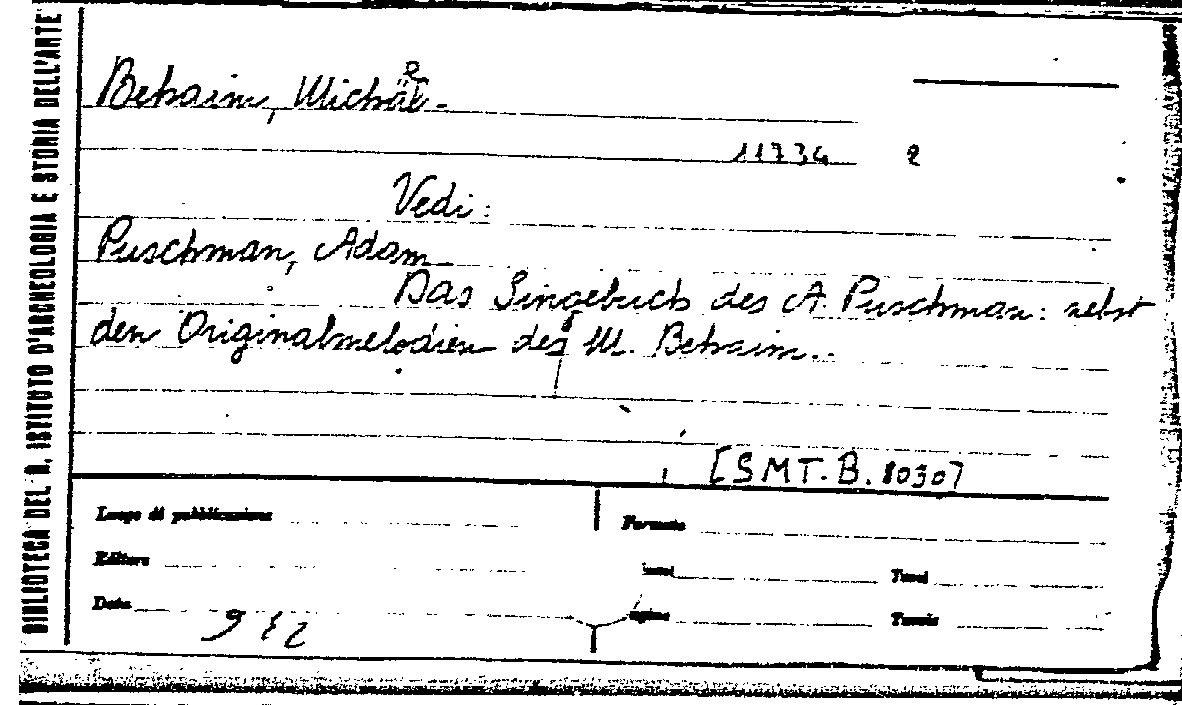 BIBLIOTECA DEL R. ISTITUTO D'ARCHEOLOGIA E STORIA DELL'ARTE
Behaim, Michael.
11734
Vedi:
Puschman, Adam
Das Singebuch des A. Puschman: nebst
den Originalmelodien des M. Behaim.
[SMT. B. 1030]
Luogo di pubblicazione
Formato
Editore
Tomi
Data
Pagine
Tavole